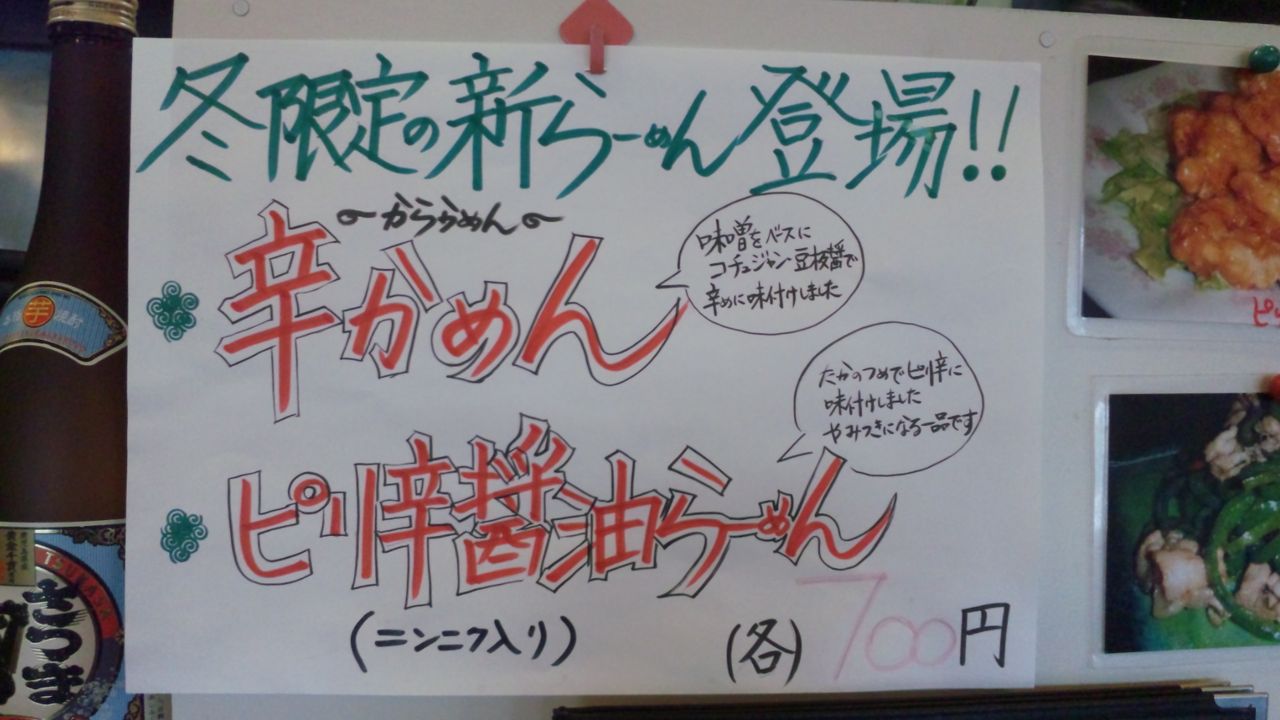 冬限定の新らーめん登場!!
～かららめん～
辛かめん
味噌をベースに
コチュジャン豆板醤で
辛めに味付けしました
たかのつめでピリ辛に
味付けしました
やみつきになる一品です
ピリ辛醤油らーめん
(ニンニク入り)
(各) 700円
芋
焼酎
さつま